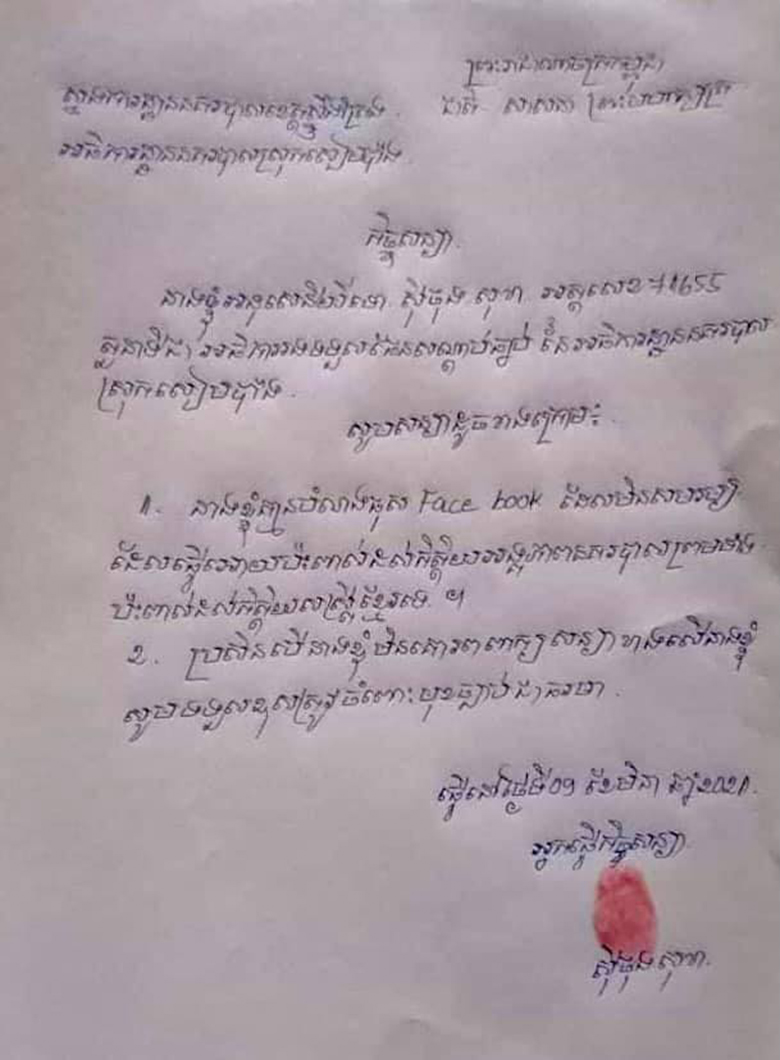 ព្រះរាជាណាចក្រកម្ពុជា
ស្នងការដ្ឋាននគរបាលខេត្តស្ទឹងត្រែង
ជាតិ សាសនា ព្រះមហាក្សត្រ
អធិការដ្ឋាននគរបាលស្រុកសៀមប៉ាង
កិច្ចសន្យា
នាងខ្ញុំអនុសេនីយ៍ទោ ស៊ីធុង សុខា អត្តលេខ
តួនាទីជា អធិការរងទទួលផែនសណ្តាប់ធ្នាប់ នៃអធិការដ្ឋាននគរបាល
ស្រុកសៀមប៉ាង
សូមសន្យាដូចខាងក្រោម៖
1. នាងខ្ញុំគ្មានបំណាងផុស Face book ដែលមិនសមរម្យ
ដែលធ្វើអោយប៉ះពាល់ដល់កិត្តិយសអង្គភាពនគរបាលព្រមទាំង
ប៉ះពាល់ដល់កិត្តិយសស្ត្រីខ្មែរទេ ។
2. ប្រសិនបើនាងខ្ញុំមិនគោរពពាក្យសន្យាខាងលើនាងខ្ញុំ
សូមទទួលខុសត្រូវចំពោះមុខច្បាប់ជាធរមាន
ធ្វើនៅថ្ងៃទី09 ខែមីនា ឆ្នាំ2021.
អ្នកធ្វើកិច្ចសន្យា
ស៊ីធុង សុខា.